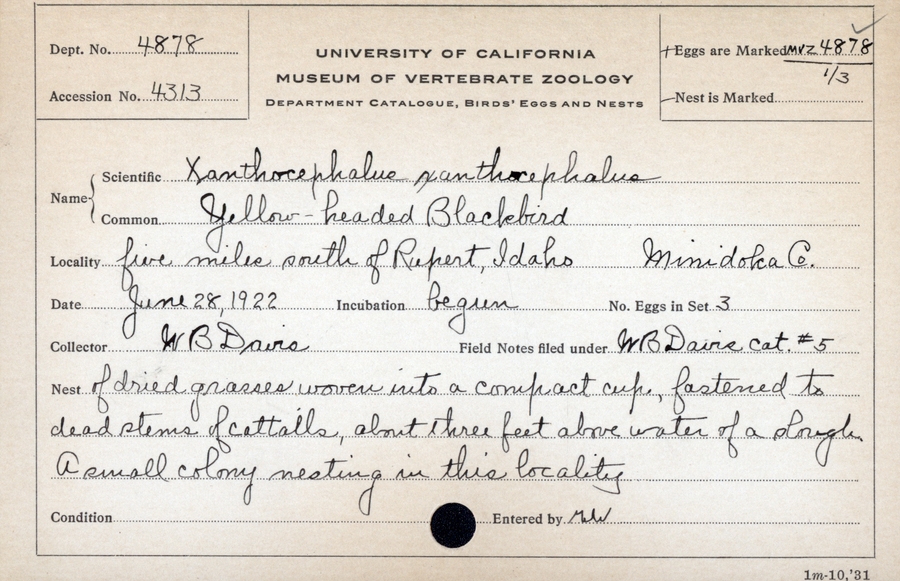 Dept. No. 4878
Accession No. 4313
UNIVERSITY OF CALIFORNIA
MUSEUM OF VERTEBRATE ZOOLOGY
DEPARTMENT CATALOGUE, BIRDS' EGGS AND NESTS
Eggs are Marked MVZ 4878
1/3
Nest is Marked
Name
Scientific Xanthocephalus xanthocephalus
Common Yellow-headed Blackbird
Locality five miles south of Rupert, Idaho Minidoka Co.
Date June 28, 1922 Incubation begun No. Eggs in Set 3
Collector W B Davis Field Notes filed under W B Davis cat. #5
Nest of dried grasses woven into a compact cup, fastened to
dead stems of cattails, about three feet above water of a slough.
A small colony nesting in this locality
Condition Entered by
1m-10,'31